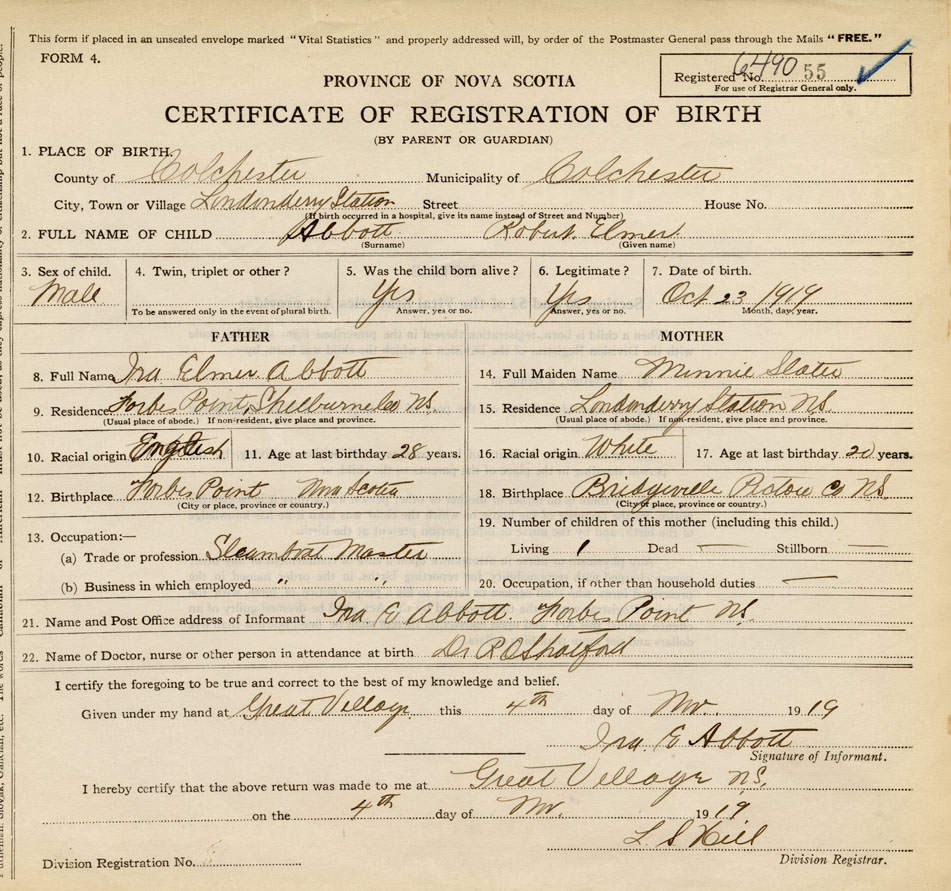 This form if placed in an unsealed envelope marked "Vital Statistics" and properly addressed will, by order of the Postmaster General pass through the Mails "FREE."
FORM 4.
Registered No. 6490 55
For use of Registrar General only.
PROVINCE OF NOVA SCOTIA
CERTIFICATE OF REGISTRATION OF BIRTH
(BY PARENT OR GUARDIAN)
1. PLACE OF BIRTH.
County of Colchester Municipality of Colchester
City, Town or Village Londonderry Station Street House No.
(If birth occurred in a hospital, give its name instead of Street and Number)
2. FULL NAME OF CHILD Abbott Robert Elmer
(Surname) (Given name)
3. Sex of child. 4. Twin, triplet or other? 5. Was the child born alive? 6. Legitimate? 7. Date of birth.
Male Yes Yes Oct 23 1919
To be answered only in the event of plural birth. Answer, yes or no. Answer, yes or no. Month, day, year.
FATHER MOTHER
8. Full Name Ira Elmer Abbott 14. Full Maiden Name Minnie Slater
9. Residence Forbes Point, Shelburne Co NS. 15. Residence Londonderry Station NS.
(Usual place of abode.) If non-resident, give place and province. (Usual place of abode.) If non-resident, give place and province.
10. Racial origin English 11. Age at last birthday 28 years. 16. Racial origin White 17. Age at last birthday 20 years.
12. Birthplace Forbes Point Nova Scotia 18. Birthplace Bridgeville Pictou Co NS
(City or place, province or country.) (City or place, province or country.)
13. Occupation:— 19. Number of children of this mother (including this child.)
(a) Trade or profession Steamboat Master Living 1 Dead — Stillborn —
(b) Business in which employed " " 20. Occupation, if other than household duties —
21. Name and Post Office address of Informant Ira E Abbott. Forbes Point NS.
22. Name of Doctor, nurse or other person in attendance at birth Dr R O Shatford
I certify the foregoing to be true and correct to the best of my knowledge and belief.
Given under my hand at Great Village this 4th day of Nov. 1919
Ira E Abbott
Signature of Informant.
I hereby certify that the above return was made to me at Great Village NS.
on the 4th day of Nov. 1919
L S Hill
Division Registration No. Division Registrar.